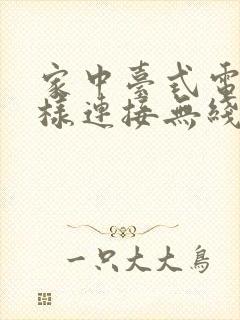 家中臺式電
樣連接無綫
一只大大鳥